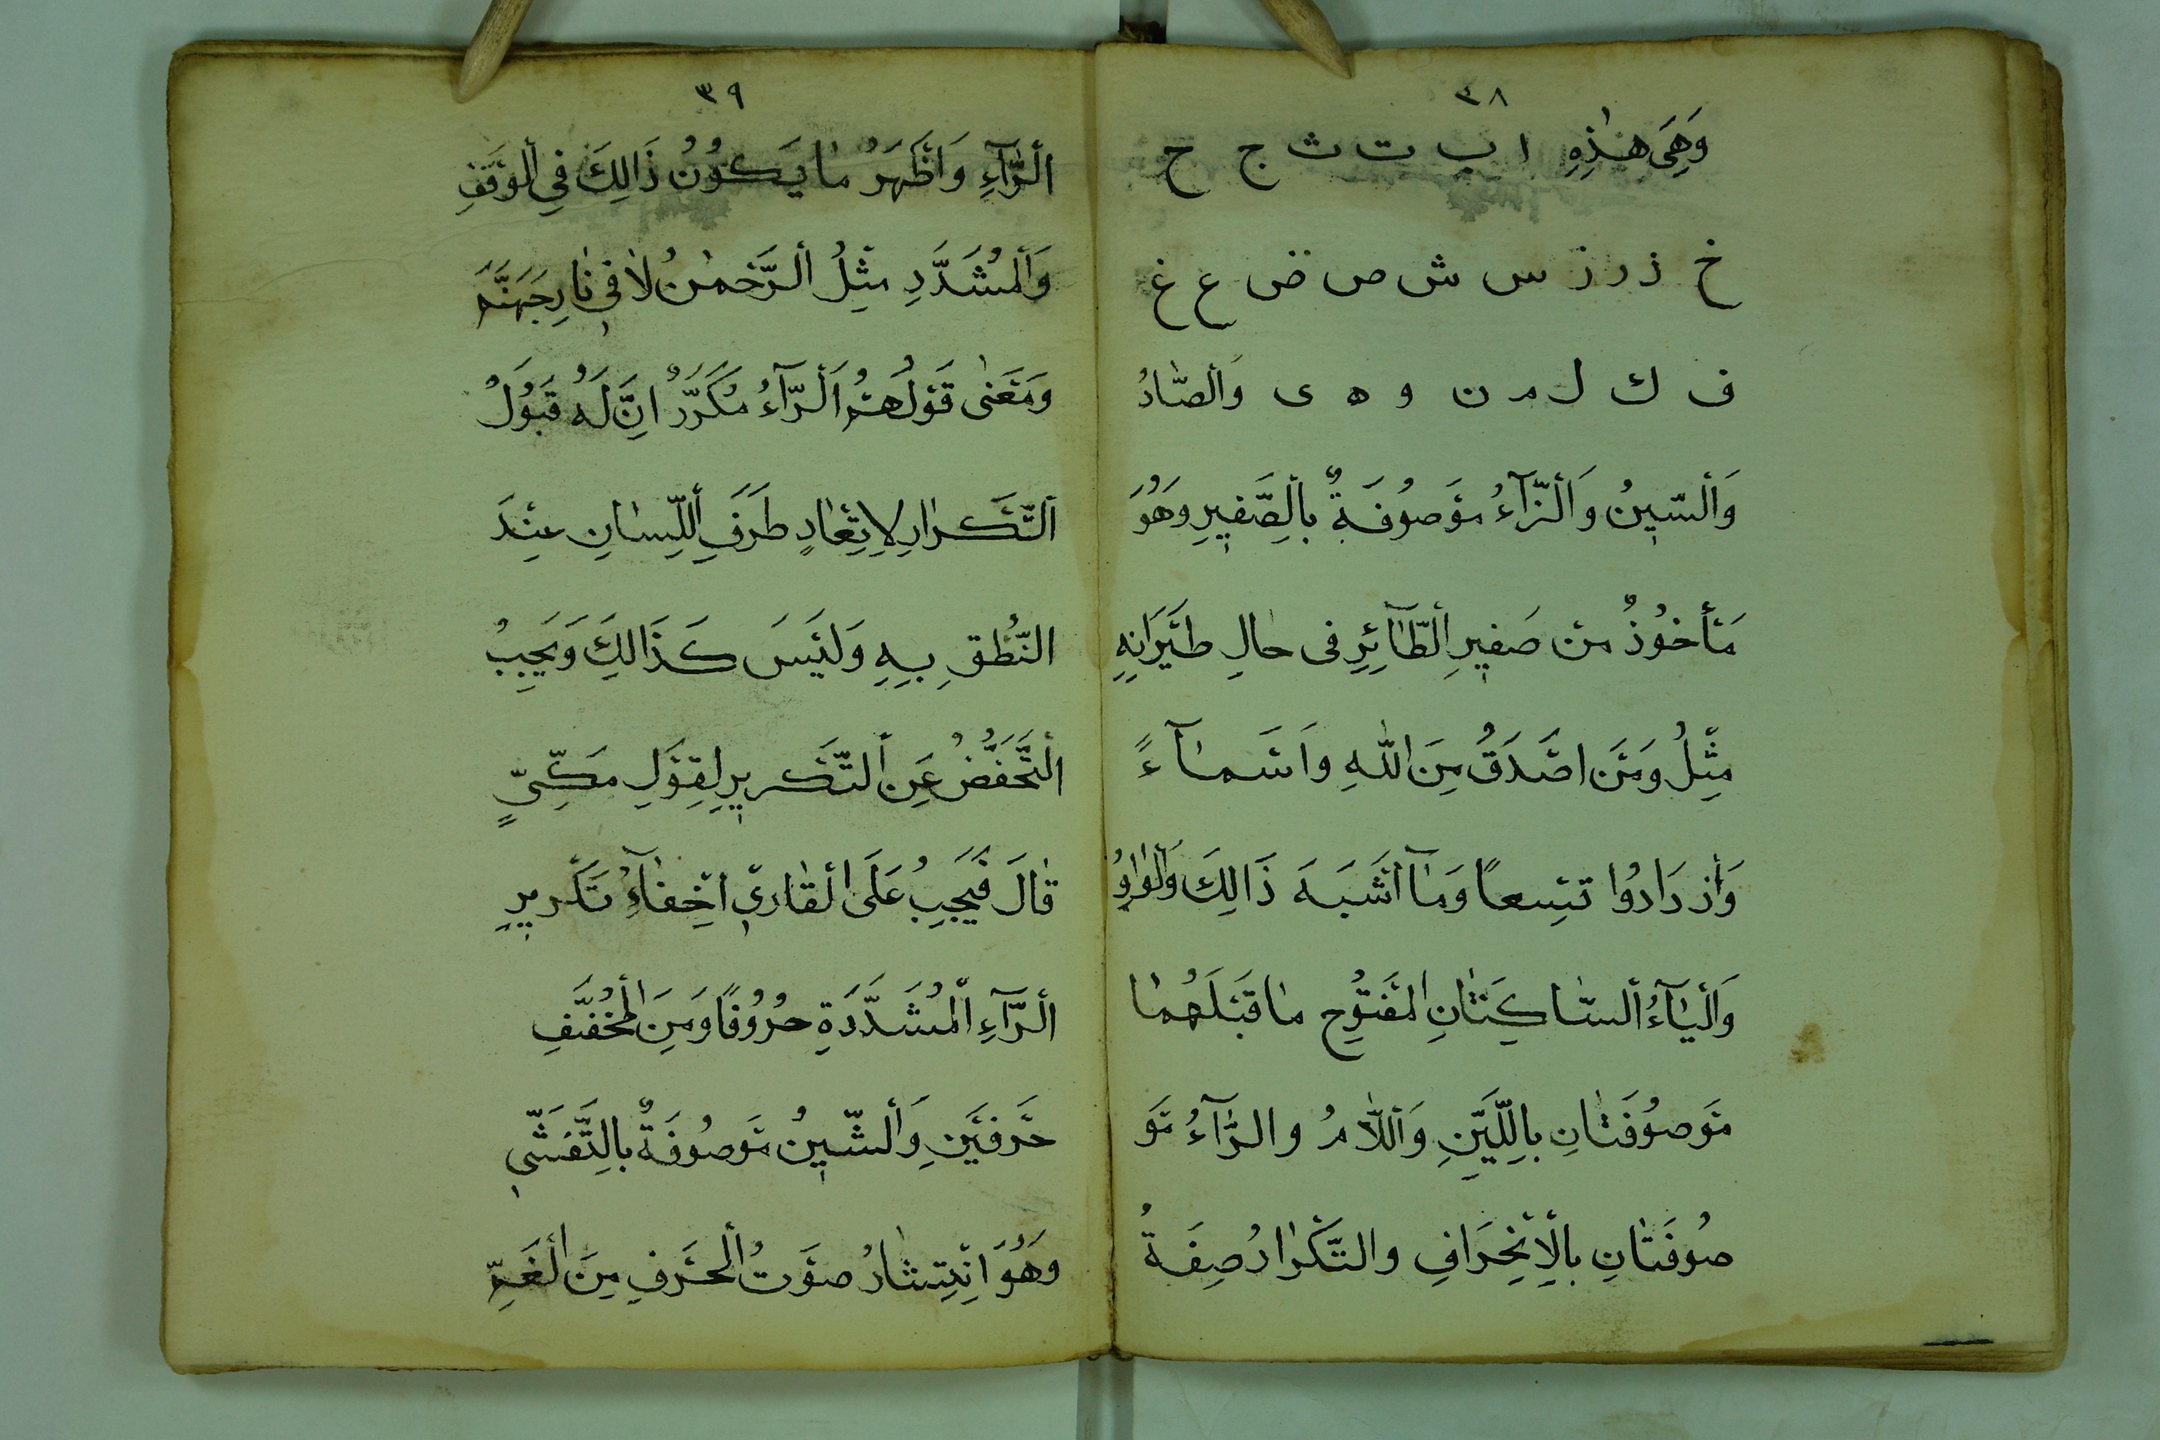 ٣٨
وَهِيَ هٰذِهِ ا ب ت ث ج ح
خ ذ ر ز س ش ص ض ع غ
ف ك ل م ن و ه ى وَالصَّادُ
وَالسّٖينُ وَالزَّآءُ مَوْصُوفَةٌ بِالصَّفٖيرِ وَهُوَ
مَأْخُوذٌ مِنْ صَفٖيرِ الطَّآئِرِ فى حَالِ طَيَرَانِهِ
مِثْلُ وَمَنْ اَصْدَقُ مِنَ اللّٰهِ وَاَسْمَآءً
وَازْدَادُوا تِسْعًا وَمَآ اَشْبَهَ ذَالِكَ وَالْوَاوُ
وَالْيَآءُ السَّاكِنَتَانِ الْمَفْتُوحِ مَا قَبْلَهُمَا
مَوْصُوفَتَانِ بِاللّينِ وَاللَّامُ وَالرَّآءُ مَوْ
صُوفَتَانِ بِالْاِنْحِرَافِ وَالتَّكْرَارُ صِفَةُ
٣٩
الرَّآءِ وَاَظْهَرُ مَا يَكُونُ ذَالِكَ فِي الْوَقْفِ
وَالْمُشَدَّدِ مِثْلُ الرَّحْمٰنُ لَا فٖي نَارِ جَهَنَّمَ
وَمَعْنٰى قَوْلُهُمْ اَلرَّآءُ مُكَرَّرٌ اِنَّ لَهُ قَبُولُ
التَّكْرَارِ لِاِرْتِعَادِ طَرَفِ اللِّسَانِ عِنْدَ
النُّطْقِ بِهِ وَلَيْسَ كَذَالِكَ وَيَجِبُ
التَّحَفُّضُ عَنِ التَّكْرٖيرِ لِقَوْلِ مَكِّيٍّ
قَالَ فَيَجِبُ عَلَى الْقَارٖي اِخْفَآءُ تَكْرٖيرِ
الرَّآءِ الْمُشَدَّدَةِ حُرُوفًا وَمِنَ الْمُخَفَّفِ
حَرْفَيْنِ وَالشّٖينُ مَوْصُوفَةٌ بِالتَّفَشّٖي
وَهُوَ اِنْتِشَارُ صَوْتُ الْحَرْفِ مِنَ الْفَمِّ